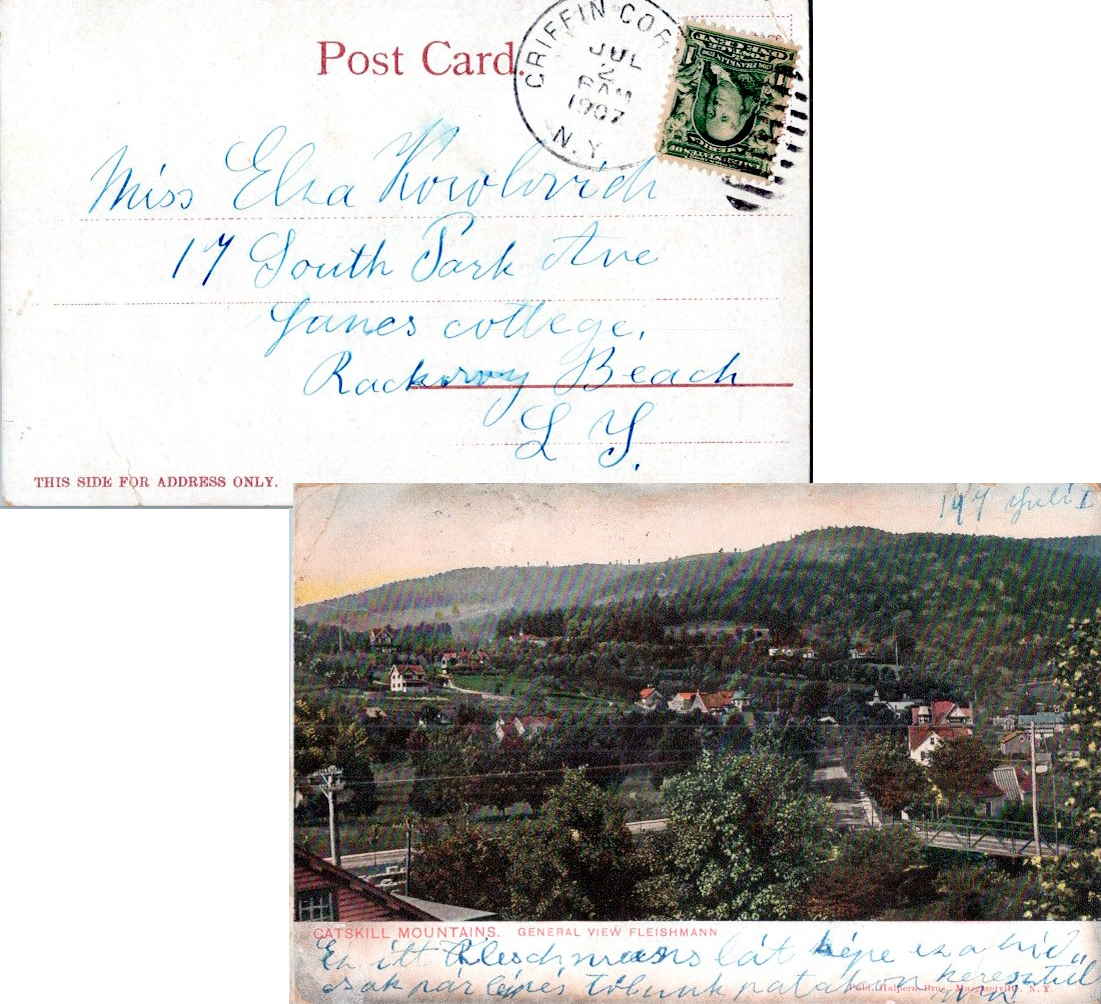 Post Card.
GRIFFIN COR
JUL
2
1907
N.Y.
ONE CENT
POSTAGE
Miss Elza
17 South Park Ave
Janes cottege,
Rackway Beach
L Y.
THIS SIDE FOR ADDRESS ONLY.
197 Juli 1
CATSKILL MOUNTAINS. GENERAL VIEW FLEISHMANN
Ez itt Fleschmans lát képe ez a híd
csak pár lépés tőlünk patakon keresztül
N. Y.